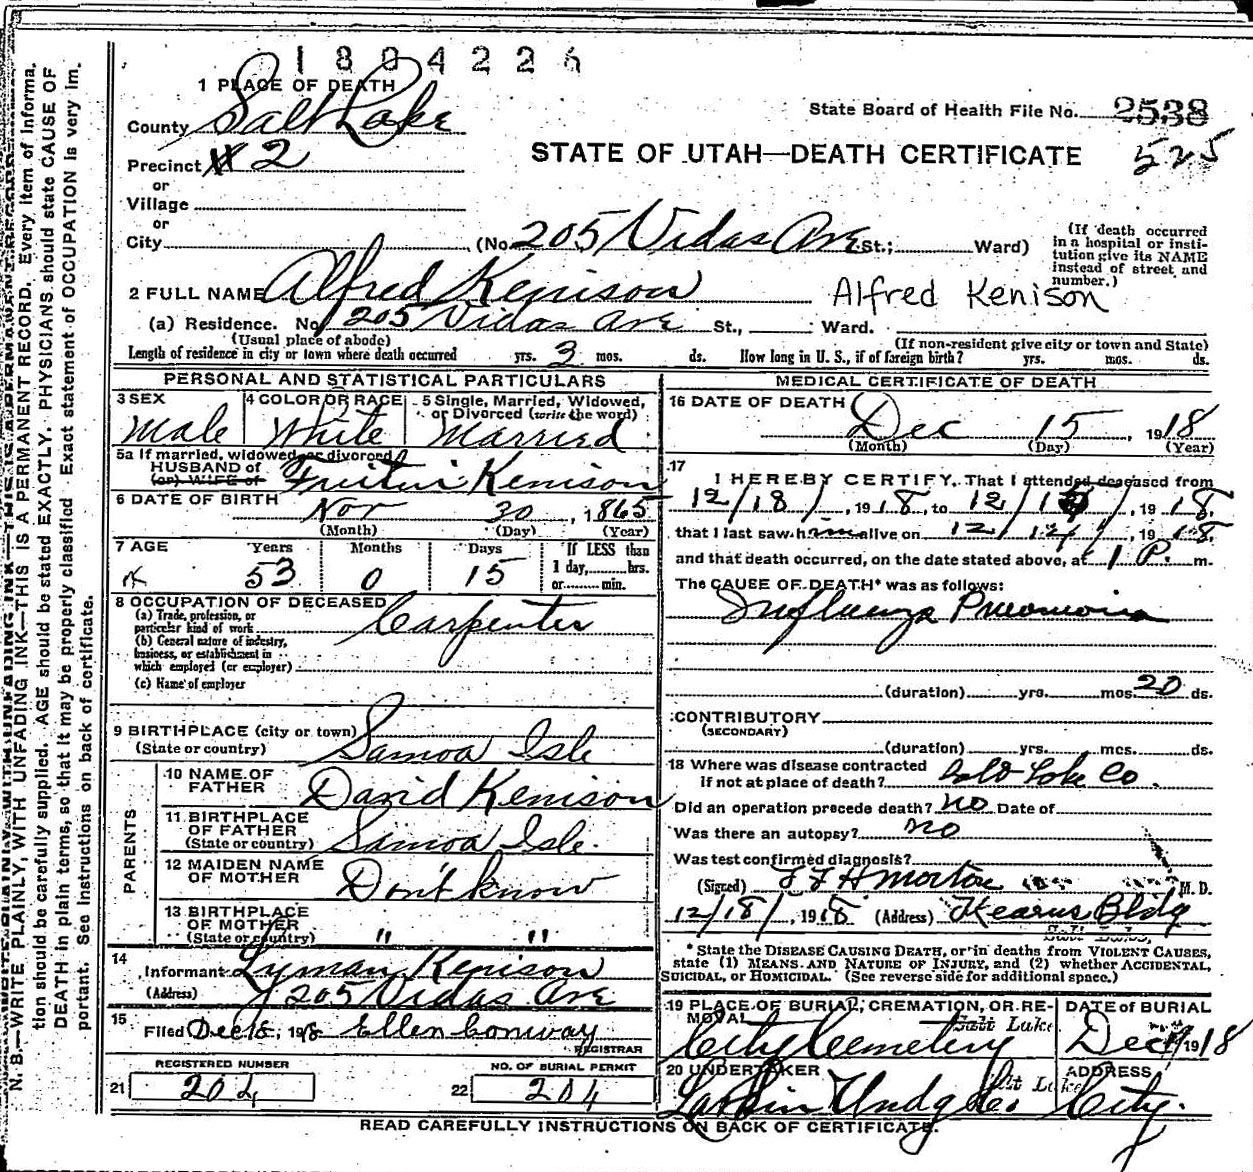 1804226
1 PLACE OF DEATH
County Salt Lake
State Board of Health File No. 2538
Precinct # 2
STATE OF UTAH—DEATH CERTIFICATE
525
or
Village
or
City (No. 205 Vidas Ave St.; Ward)
(If death occurred in a hospital or insti-
tution give its NAME instead of street and number.)
2 FULL NAME Alfred Kenison
Alfred Kenison
(a) Residence. No. 205 Vidas Ave St., Ward.
(Usual place of abode)
(If non-resident give city or town and State)
Length of residence in city or town where death occurred yrs. 3 mos. ds. How long in U. S., if of foreign birth? yrs. mos. ds.
PERSONAL AND STATISTICAL PARTICULARS
3 SEX Male
4 COLOR OR RACE White
5 Single, Married, Widowed, or Divorced (write the word) Married
5a If married, widowed or divorced
HUSBAND of
(or) WIFE of
Kenison
6 DATE OF BIRTH Nov 30, 1865
(Month) (Day) (Year)
7 AGE
Years Months Days
53 0 15
If LESS than 1 day, hrs. or min.
8 OCCUPATION OF DECEASED
(a) Trade, profession, or particular kind of work Carpenter
(b) General nature of industry, business, or establishment in which employed (or employer)
(c) Name of employer
9 BIRTHPLACE (city or town)
(State or country) Samoa Isle
PARENTS
10 NAME OF FATHER David Kenison
11 BIRTHPLACE OF FATHER (State or country) Samoa Isle.
12 MAIDEN NAME OF MOTHER Don't know
13 BIRTHPLACE OF MOTHER (State or country) " "
14 Informant Lyman Kenison
(Address) 205 Vidas Ave
15 Filed Dec 18, 1918 Ellen Conway
REGISTRAR
REGISTERED NUMBER
21 204
NO. OF BURIAL PERMIT
22 204
MEDICAL CERTIFICATE OF DEATH
16 DATE OF DEATH Dec 15, 1918
(Month) (Day) (Year)
17 I HEREBY CERTIFY, That I attended deceased from
12/18/, 1918, to 12/, 1918.
that I last saw him alive on 12/14/, 1918.
and that death occurred, on the date stated above, at 1 P. m.
The CAUSE OF DEATH* was as follows:
Influenza Pneumonia
(duration) yrs. mos. 20 ds.
CONTRIBUTORY
(SECONDARY)
(duration) yrs. mos. ds.
18 Where was disease contracted
if not at place of death? Salt Lake Co.
Did an operation precede death? no Date of
Was there an autopsy? no
Was test confirmed diagnosis?
(Signed) M. D.
12/18/, 1918 (Address) Kearns Bldg
* State the DISEASE CAUSING DEATH, or in deaths from VIOLENT CAUSES,
state (1) MEANS AND NATURE OF INJURY, and (2) whether ACCIDENTAL,
SUICIDAL, or HOMICIDAL. (See reverse side for additional space.)
19 PLACE OF BURIAL, CREMATION, OR RE-
MOVAL Salt Lake
City Cemetery
DATE of BURIAL
Dec 1918
20 UNDERTAKER Salt Lake
Larkin Undg Co.
ADDRESS
City.
READ CAREFULLY INSTRUCTIONS ON BACK OF CERTIFICATE.
N. B.—WRITE PLAINLY, WITH UNFADING INK—THIS IS A PERMANENT RECORD. Every item of informa-
tion should be carefully supplied. AGE should be stated EXACTLY. PHYSICIANS should state CAUSE OF
DEATH in plain terms, so that it may be properly classified. Exact statement of OCCUPATION is very im-
portant. See instructions on back of certificate.